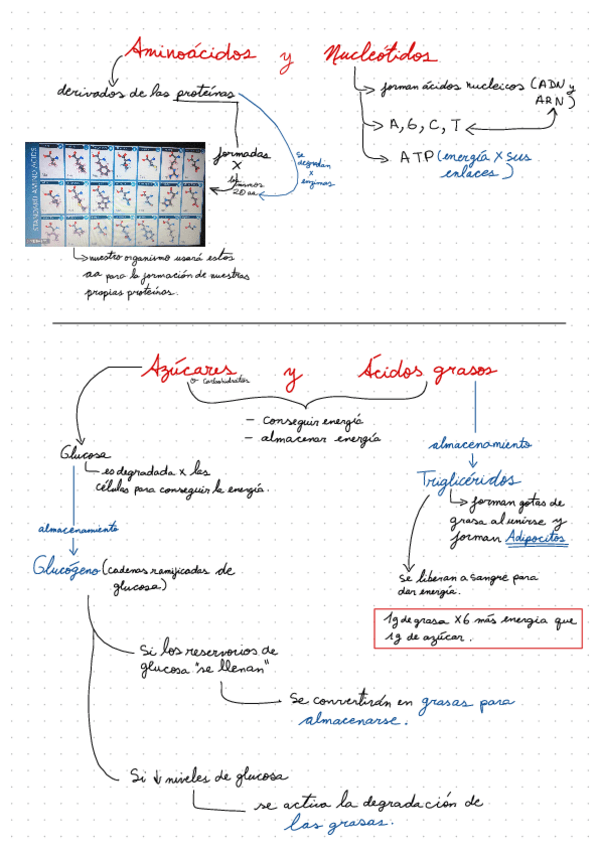 Aminoácidos y Nucleótidos
derivados de las proteínas
formadas
x
los mismos
20 aa
se
degradan
x
enzimas
STANDARD AMINO ACIDS
nuestro organismo usará estos
aa para la formación de nuestras
propias proteínas.
forman ácidos nucleicos (ADN y
ARN)
A, G, C, T
ATP (energía x sus
enlaces)
Azúcares y Ácidos grasos
o carbohidratos
- conseguir energía
- almacenar energía
Glucosa
es degradada x las
células para conseguir la energía.
almacenamiento
Glucógeno (cadenas ramificadas de
glucosa)
almacenamiento
Triglicéridos
forman gotas de
grasa al unirse y
forman Adipocitos
se liberan a sangre para
dar energía.
1g de grasa x6 más energía que
1g de azúcar.
Si los reservorios de
glucosa "se llenan"
Se convertirán en grasas para
almacenarse.
Si ↓ niveles de glucosa
se activa la degradación de
las grasas.